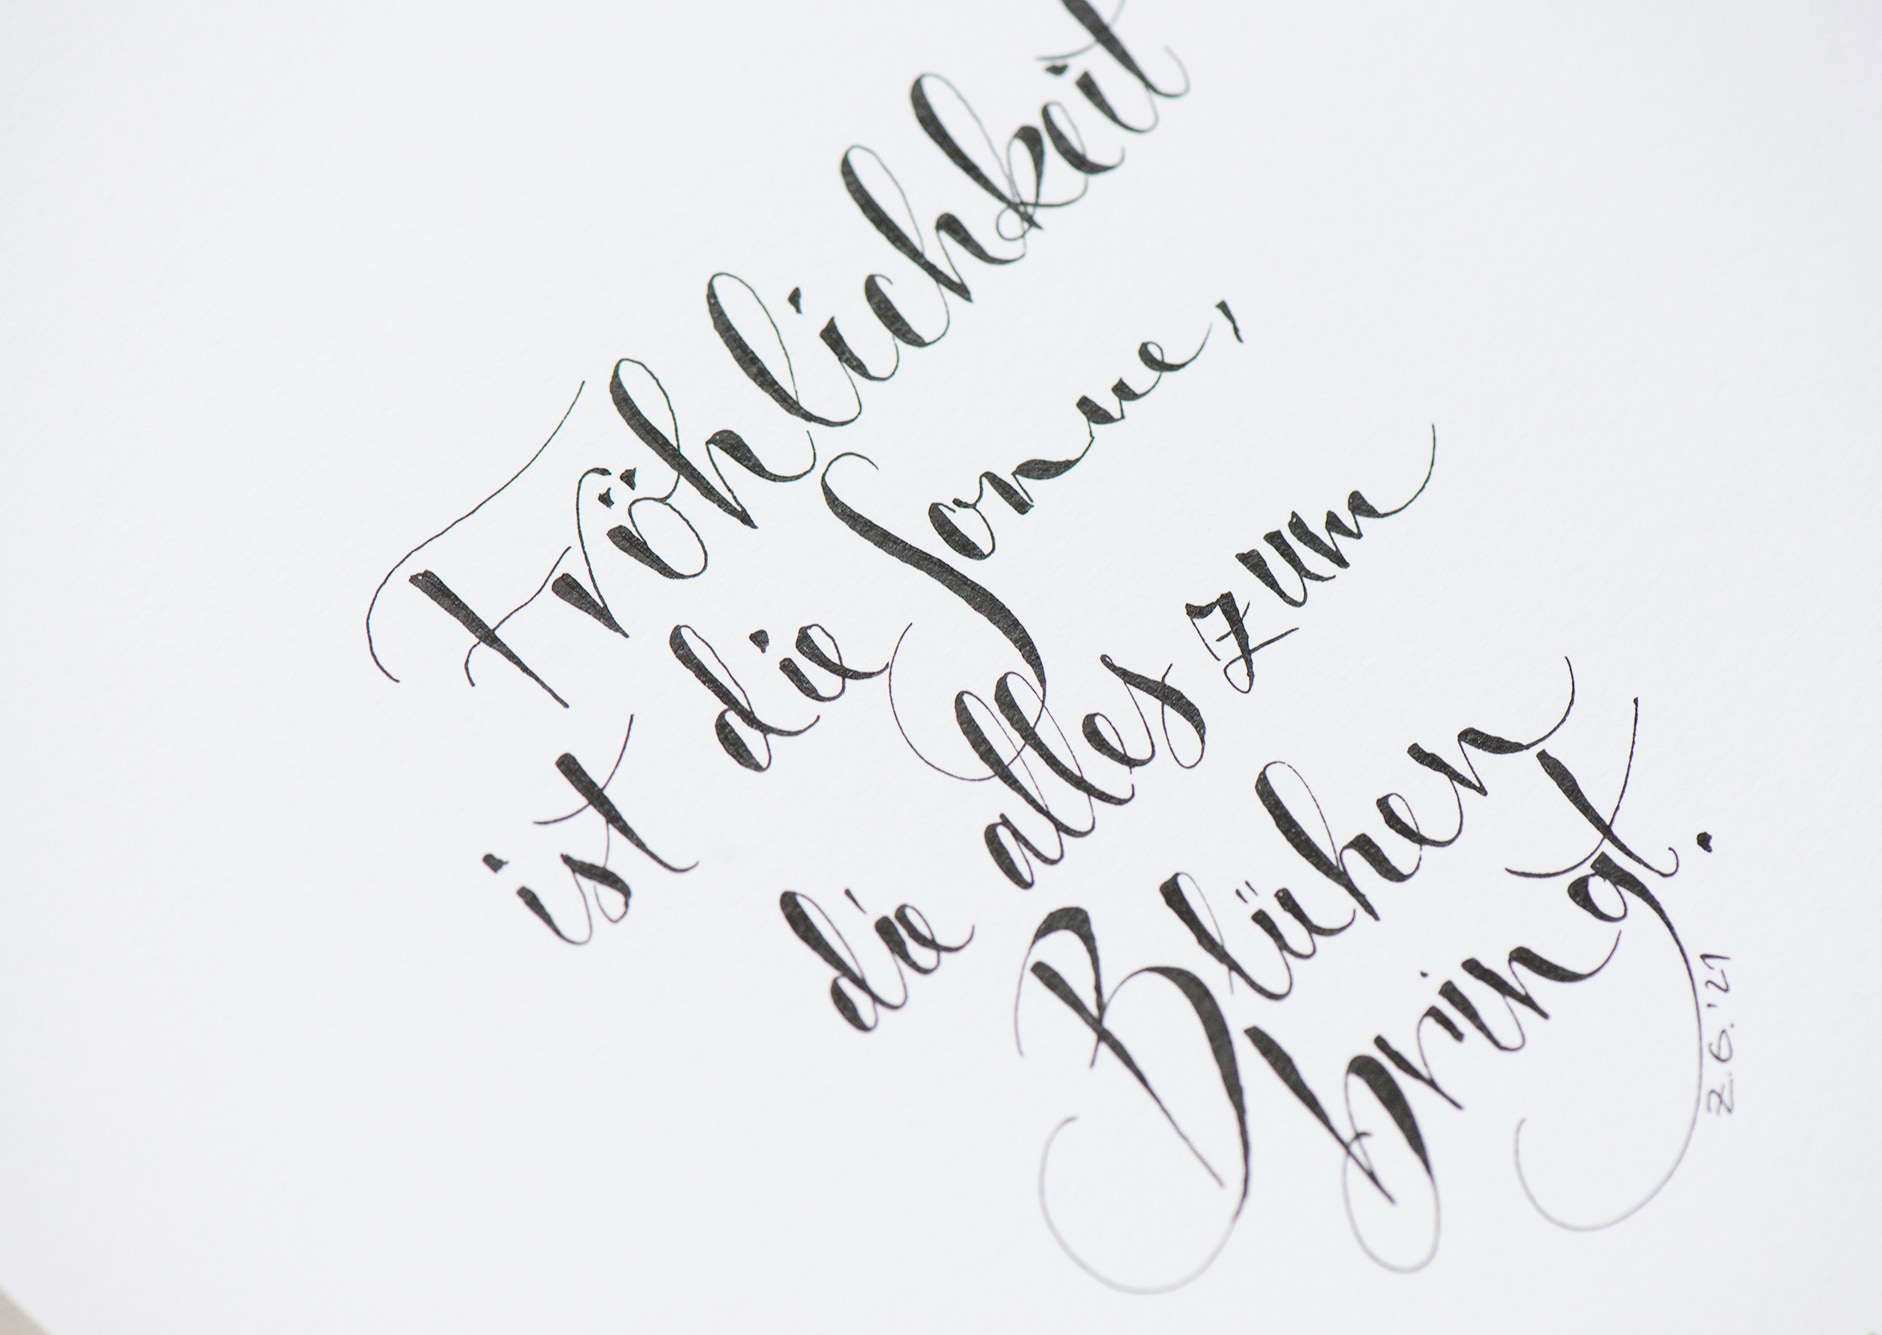 Fröhlichkeit
ist die Sonne,
die alles zum
Blühen
bringt.
Z.6.'21